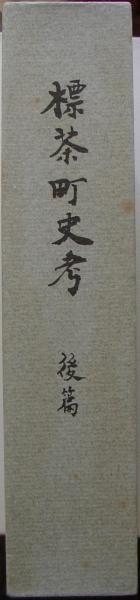 標茶町史考
後篇